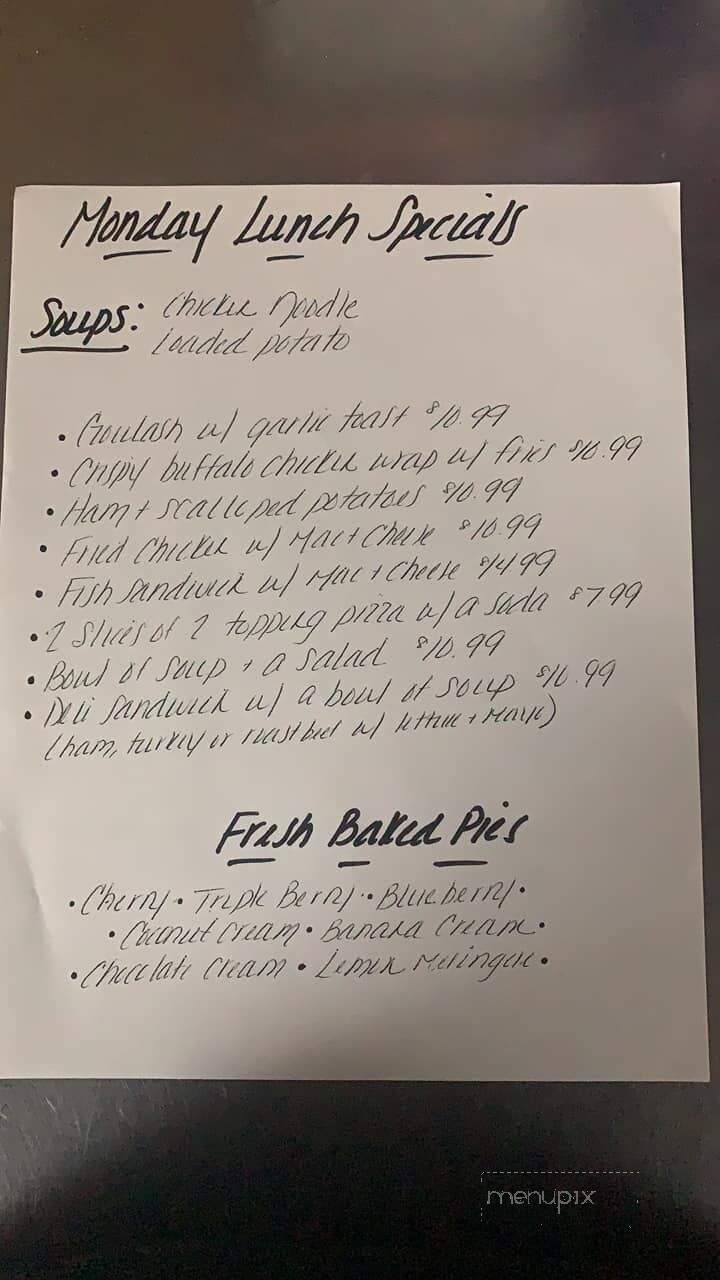 Monday Lunch Specials
Soups: Chicken Noodle
Loaded potato
• Goulash w/ garlic toast $10.99
• Crispy buffalo chicken wrap w/ fries $10.99
• Ham + scalloped potatoes $10.99
• Fried Chicken w/ Mac + Cheese $10.99
• Fish sandwich w/ Mac + Cheese $14.99
• 2 Slices of 2 topping pizza w/ a soda $7.99
• Bowl of soup + a salad $10.99
• Deli sandwich w/ a bowl of soup $10.99
(ham, turkey or roast beef w/ lettuce + Mayo)
Fresh Baked Pies
• Cherry • Triple Berry • Blueberry •
• Coconut Cream • Banana Cream •
• Chocolate Cream • Lemon Meringue •
menupix